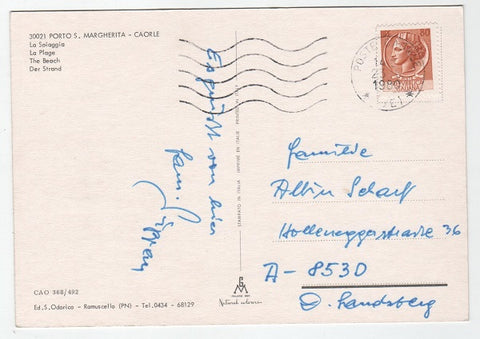 30021 PORTO S. MARGHERITA - CAORLE
La Spiaggia
La Plage
The Beach
Der Strand
Es grüsst von hier
Fam.
CAO 368/492
Ed. S. Odorico - Ramuscello (PN) - Tel. 0434 - 68129
STAMPATO IN ITALIA - IMPRIMÉ EN ITALIE - PRINTED IN ITALY
80
1980
Familie
Albin Scharf
Holleneggerstraße 36
A-8530
D. Landsberg